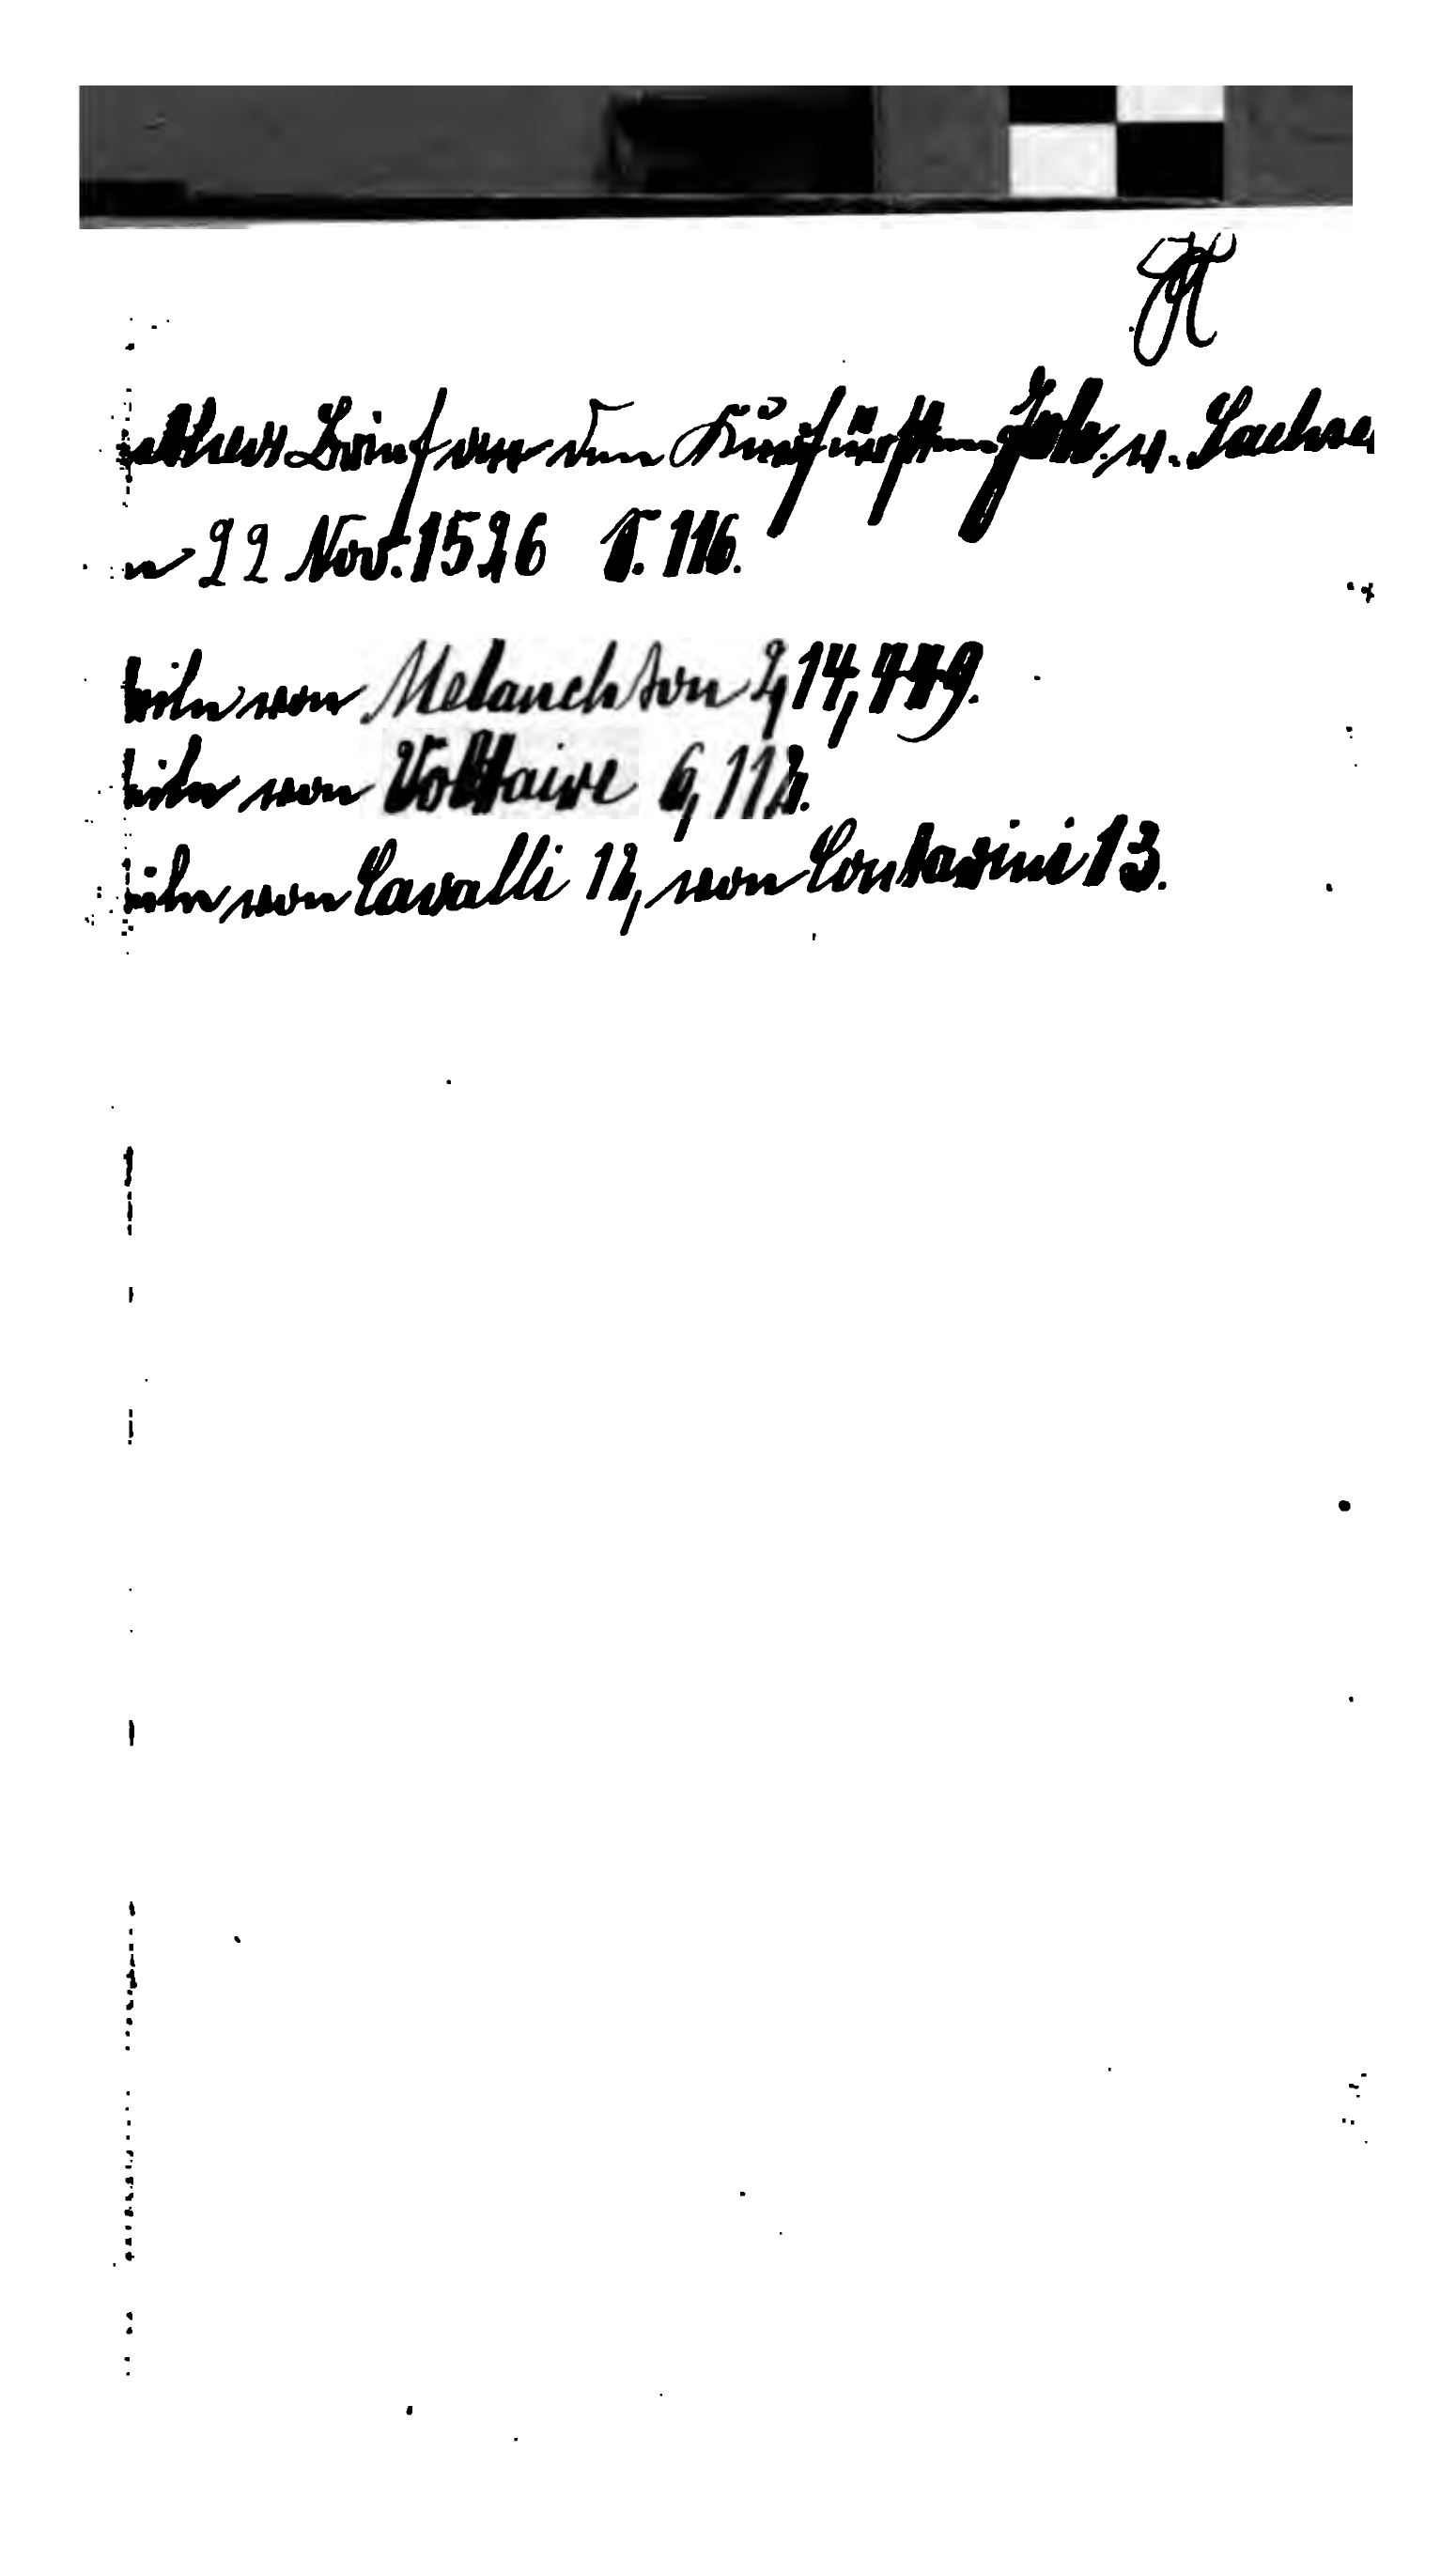 Luthers Brief an den Kurfürsten Joh. v. Sachsen
22 Nov. 1526 S. 116.
von Melanchton 2, 14, 449.
von Voltaire 6, 113.
von Cavalli 12, von Contarini 13.